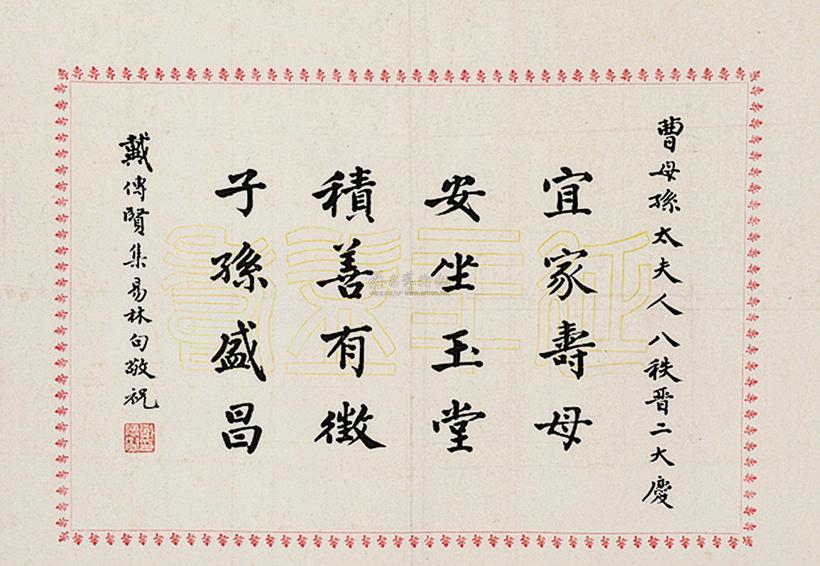 曹母孫太夫人八秩晋二大慶
宜家壽母
安坐玉堂
積善有徵
子孫盛昌
戴傳賢集易林句敬祝